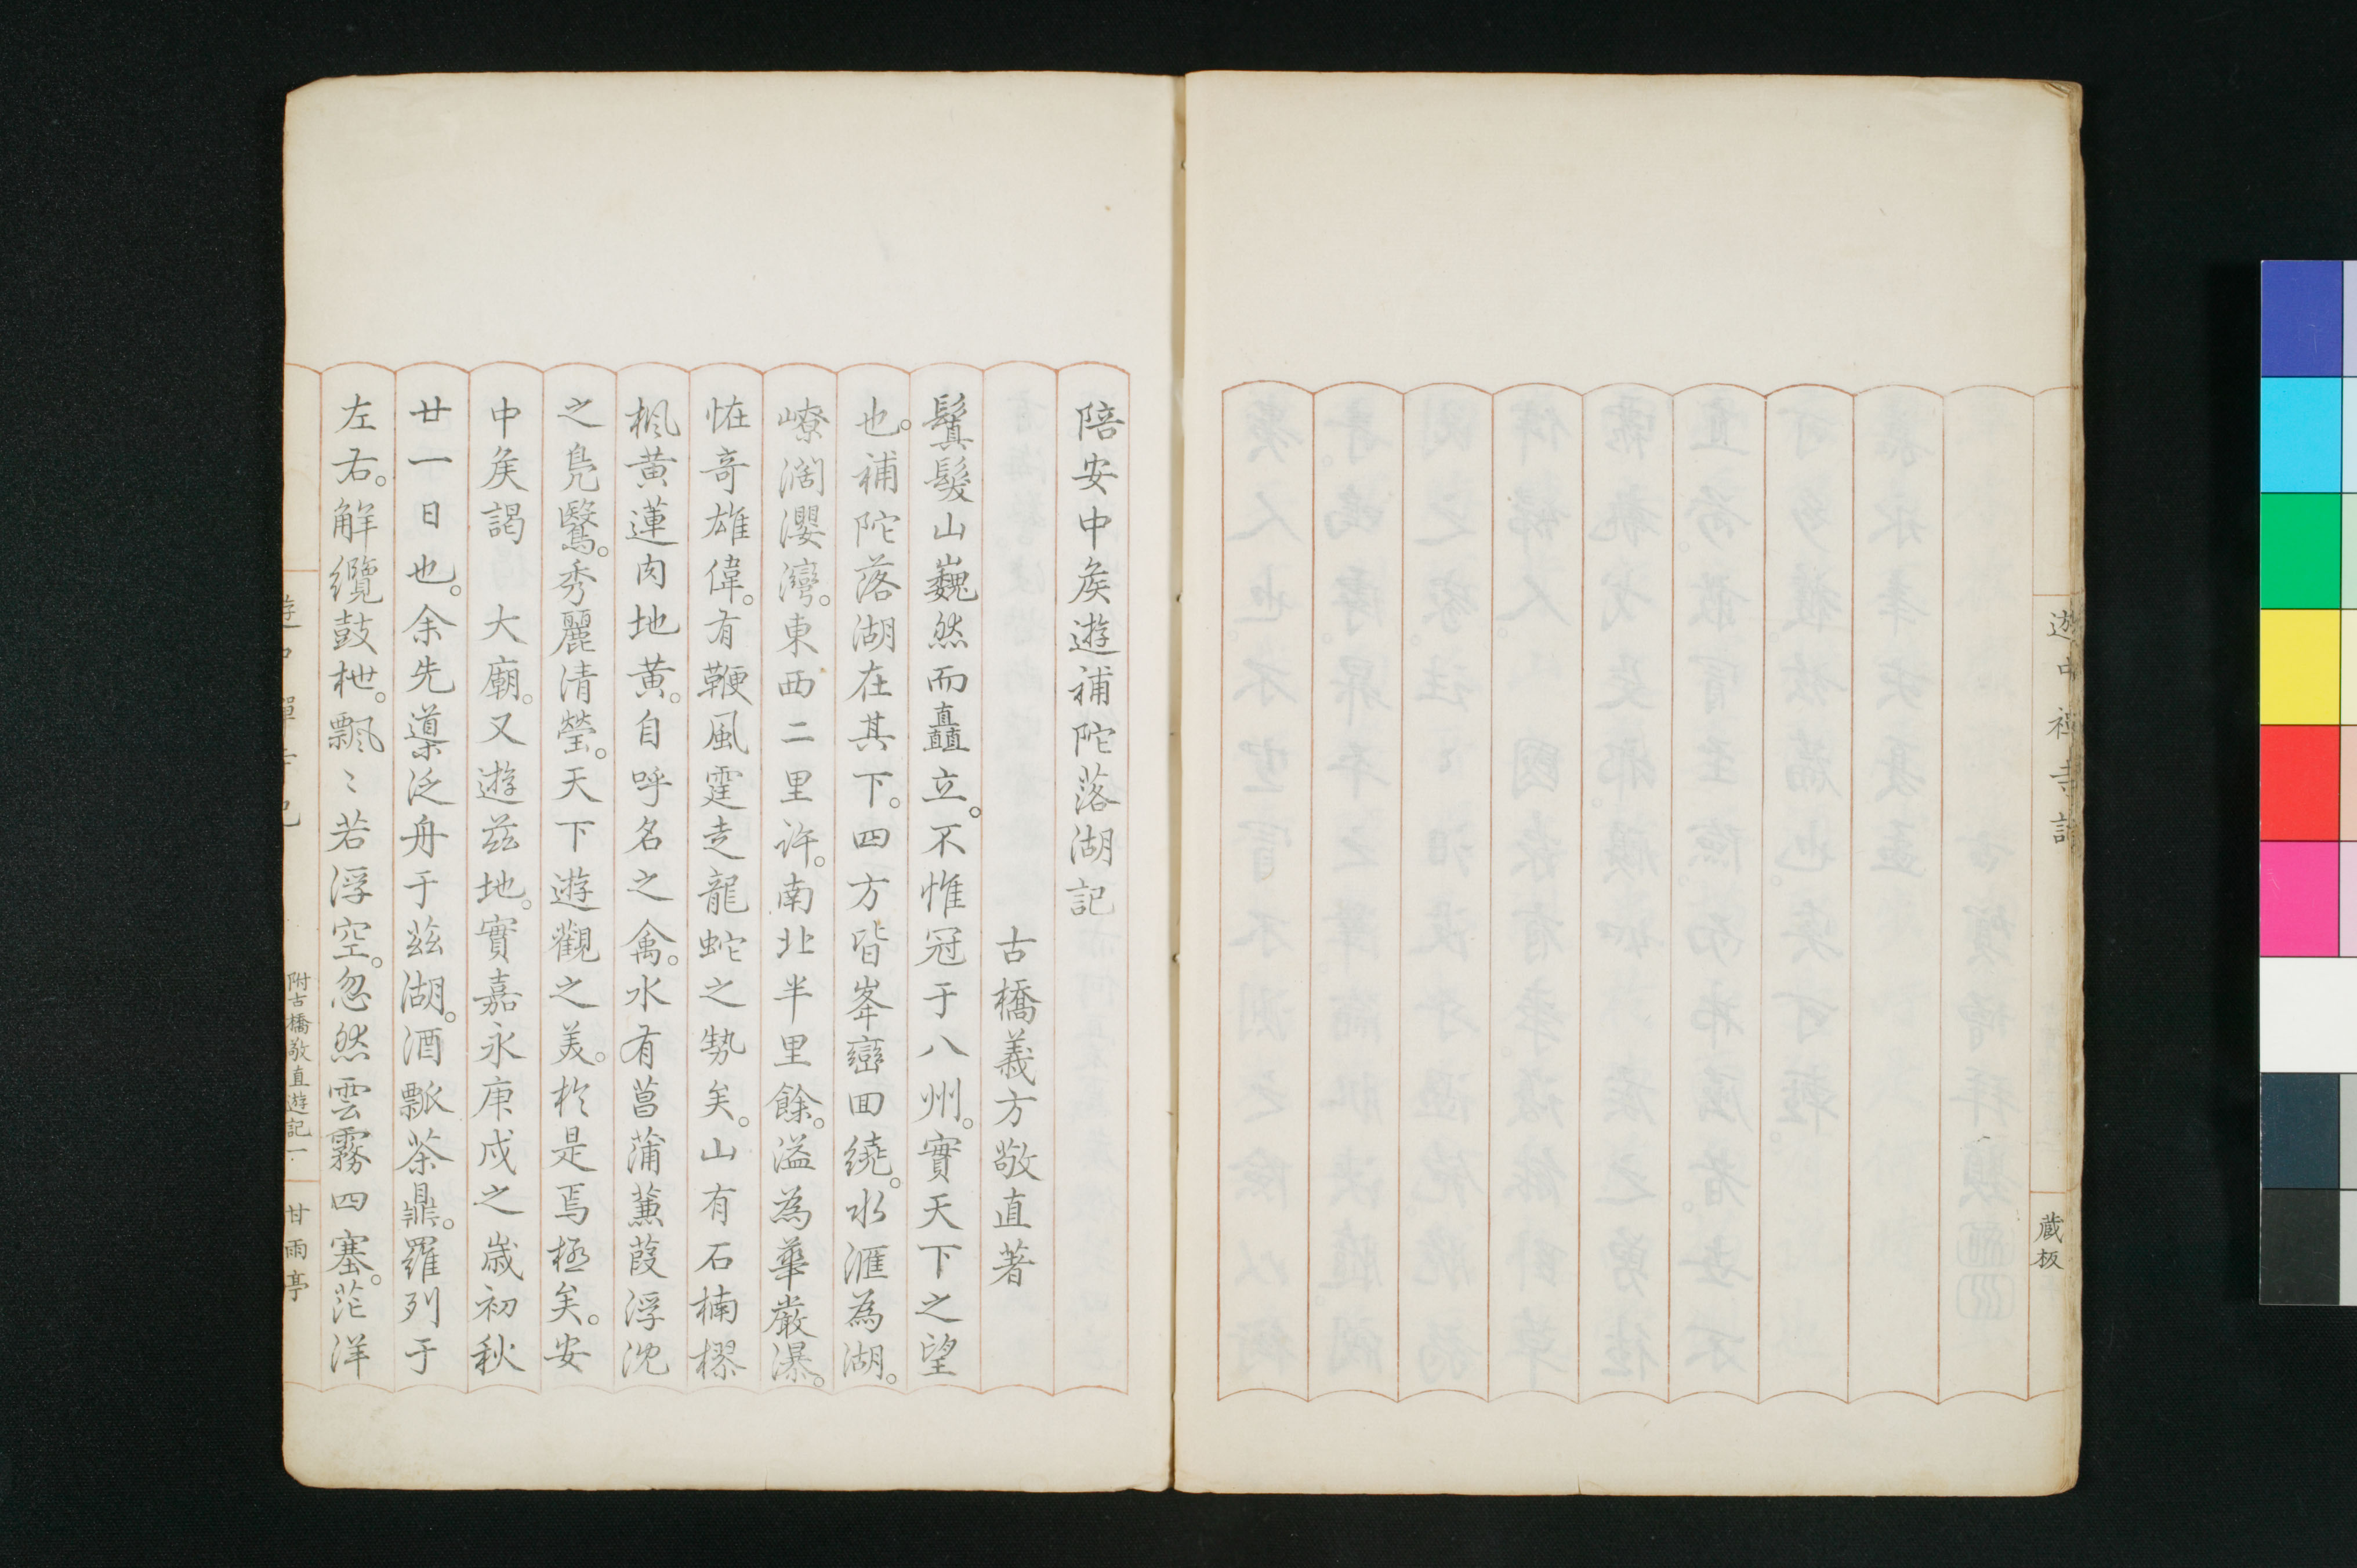 遊中禅寺記
蔵板
陪安中矦遊補陀落湖記
古橋義方敬直著
鬒髮山巍然而矗立。不惟冠于八州。實天下之望
也。補陀落湖在其下。四方皆峯巒回繞。水滙為湖。
嶚濶瀴灣。東西二里許。南北半里餘。溢為華嚴瀑。
恠奇雄偉。有鞭風霆走龍蛇之勢矣。山有石楠樛
楓黄蓮肉地黄。自呼名之禽。水有菖蒲蒹葭浮沈
之鳧鷖。秀麗清瑩。天下遊觀之美。於是焉極矣。安
中矦謁　大廟。又遊茲地。實嘉永庚戌之歳初秋
廿一日也。余先導泛舟于茲湖。酒瓢茶鼎。羅列于
左右。解纜鼓枻。飄〻若浮空。忽然雲霧四塞。茫洋
附古橋敬直遊記一
甘雨亭